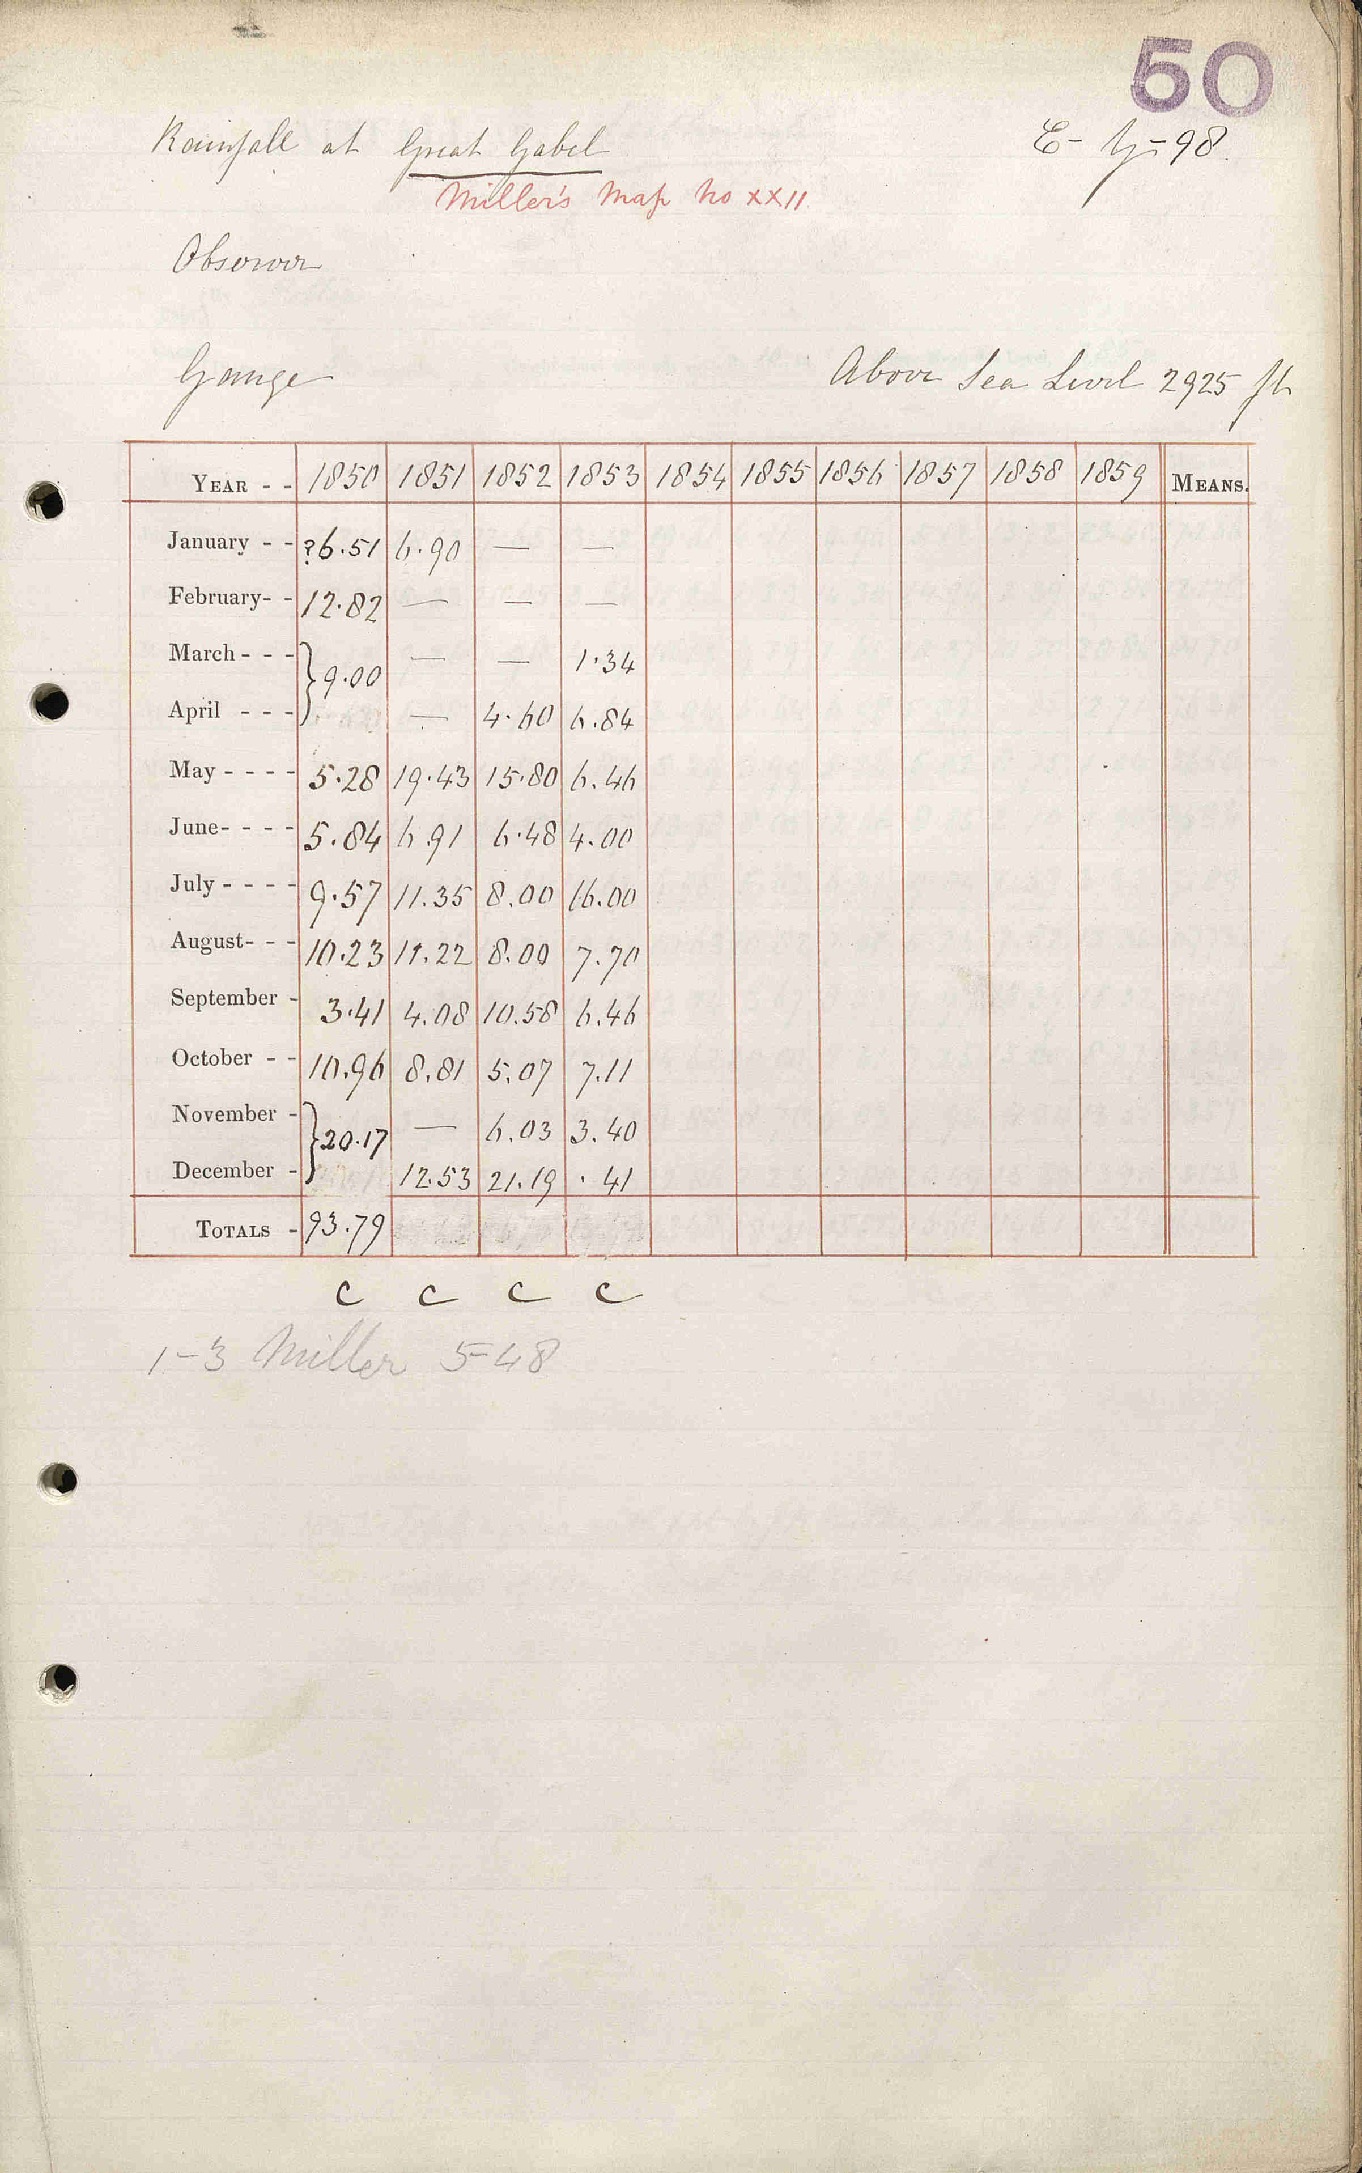 50
Rainfall at Great Gabel E- G-98.
Miller's Map No XXII
Observer
Gauge Above Sea Level 2925 ft
YEAR - - 1850 1851 1852 1853 1854 1855 1856 1857 1858 1859 MEANS.
January - - ?6.51 6.90 — —
February- - 12.82 — — —
March - - - } 9.00 — — 1.34
April - - - — 4.60 6.84
May - - - - 5.28 19.43 15.80 6.46
June- - - - 5.84 6.91 6.48 4.00
July - - - - 9.57 11.35 8.00 16.00
August- - - 10.23 11.22 8.00 7.70
September - 3.41 4.08 10.58 6.46
October - - 10.96 8.81 5.07 7.11
November - } 20.17 — 6.03 3.40
December - 12.53 21.19 .41
TOTALS - 93.79
C C C C
1-3 Miller 5-48